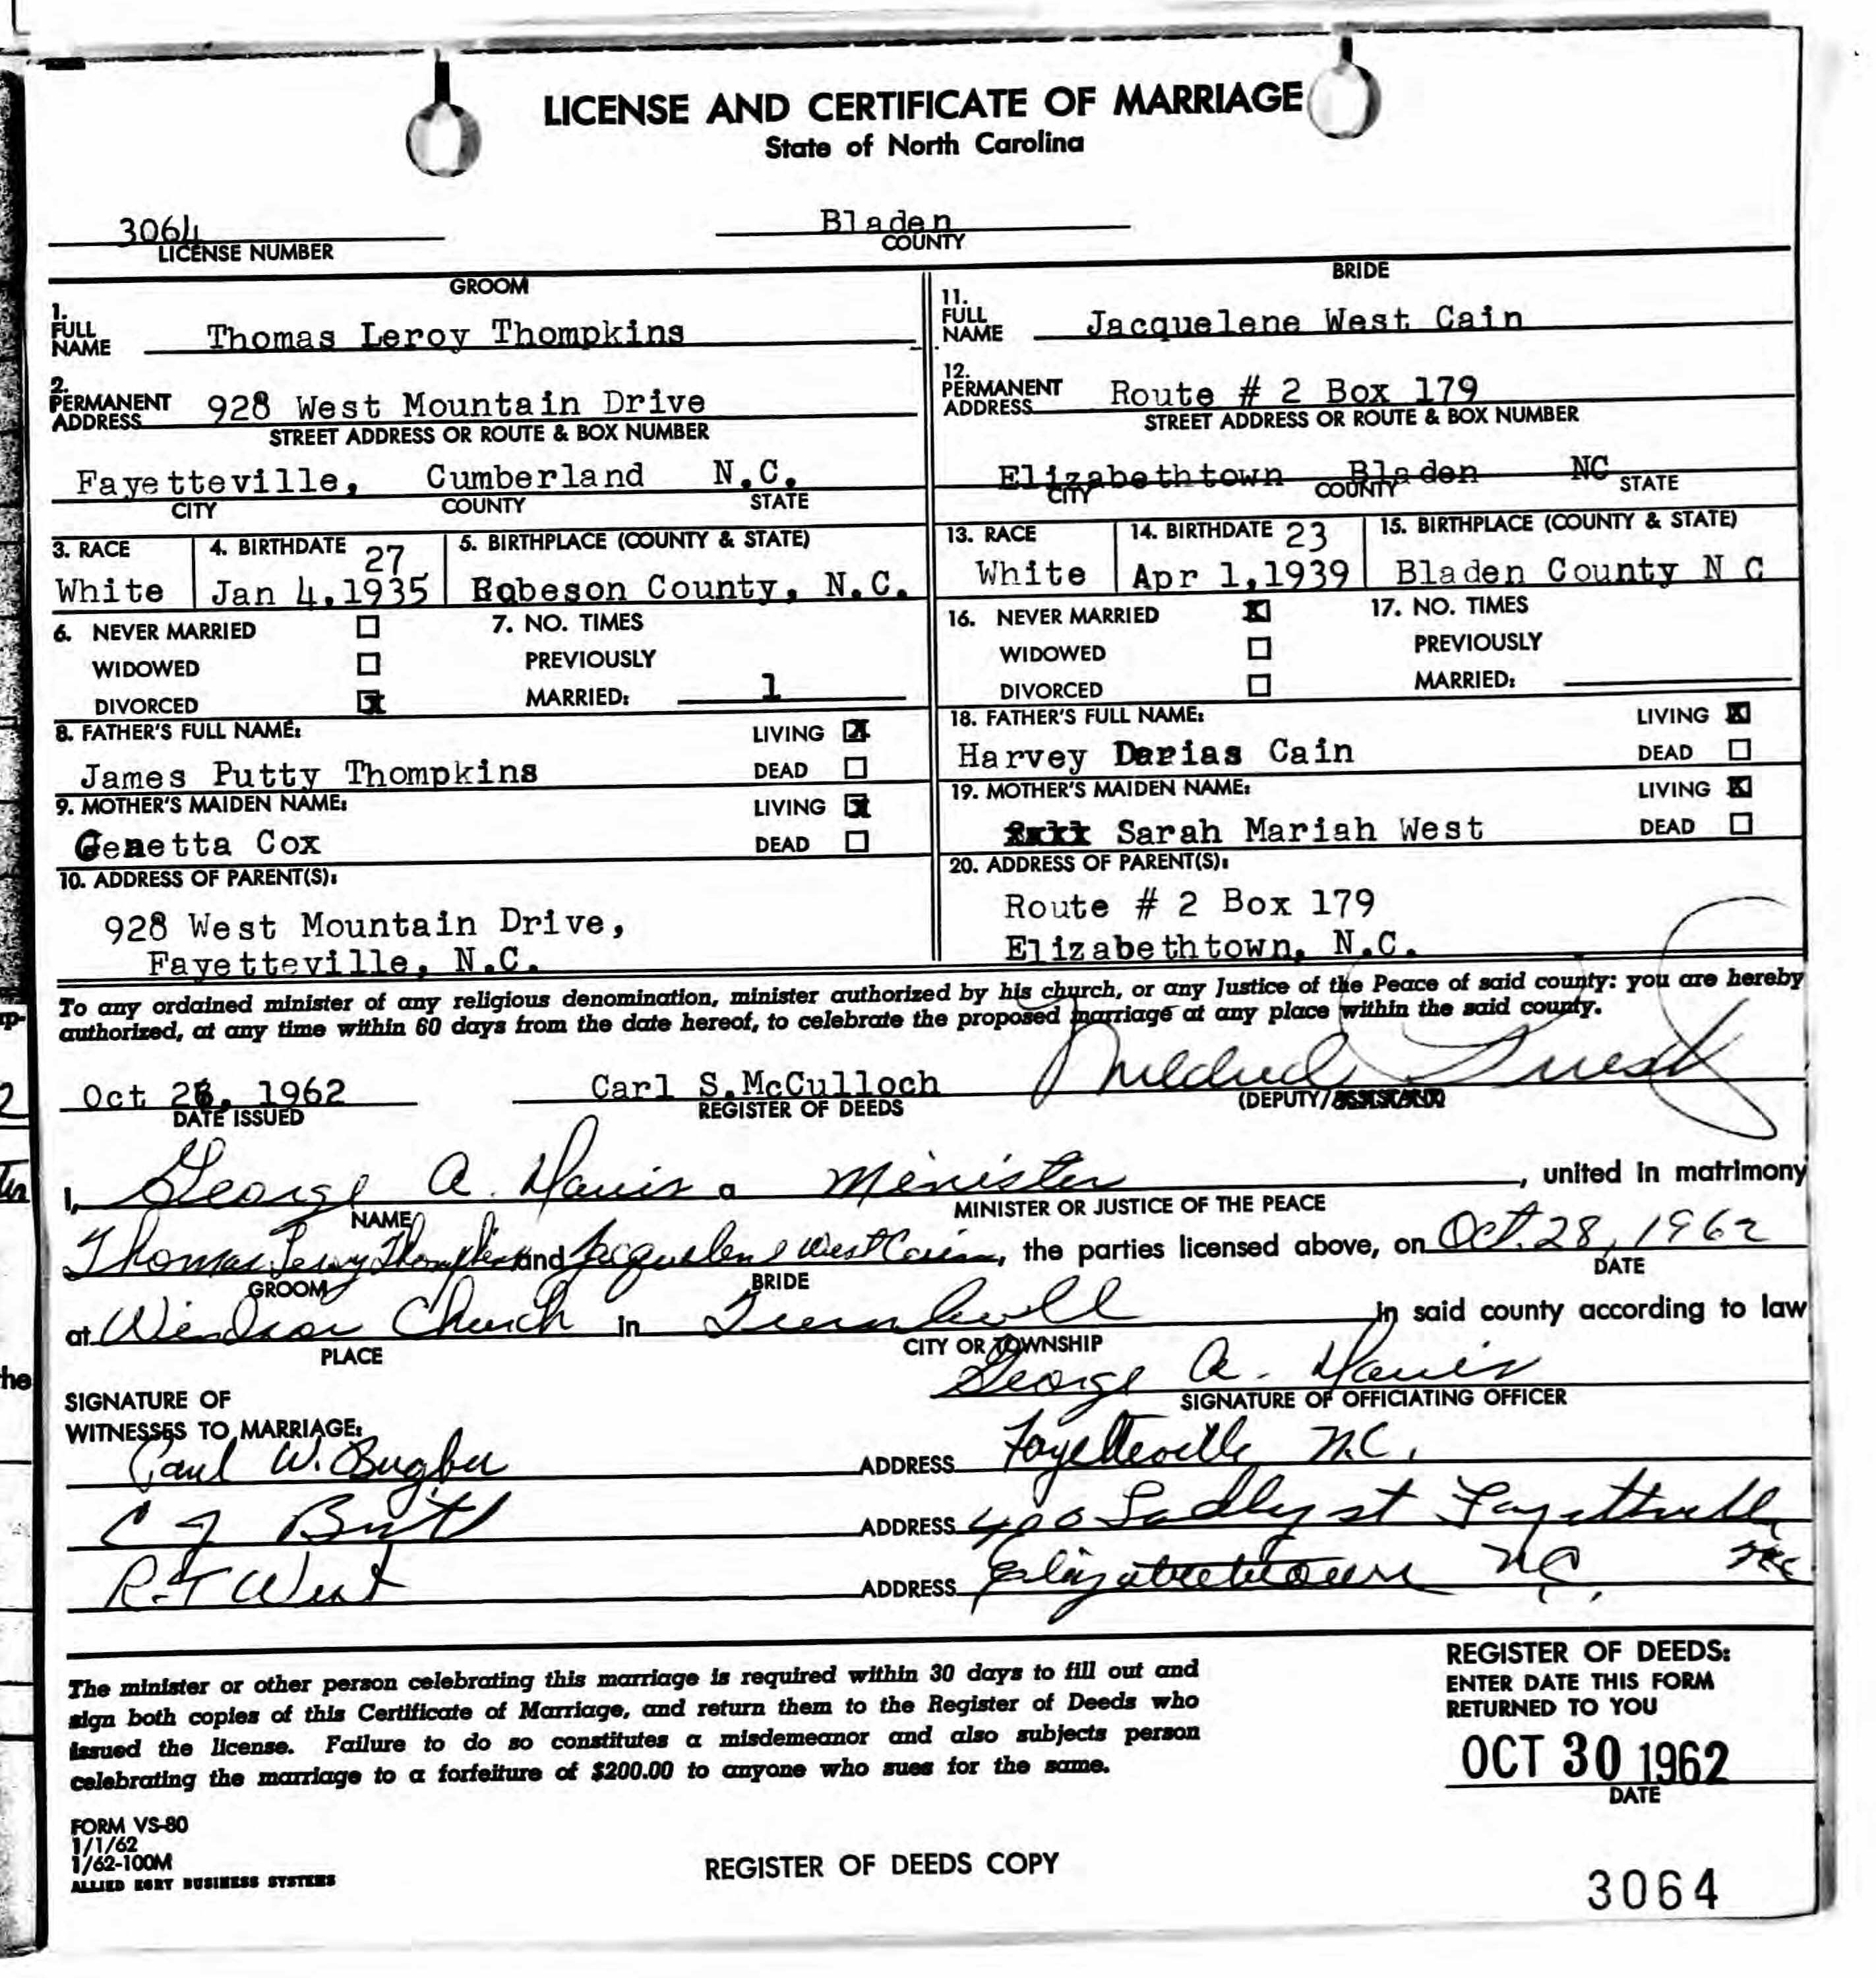 LICENSE AND CERTIFICATE OF MARRIAGE
State of North Carolina
3064
LICENSE NUMBER
Bladen
COUNTY
GROOM
1. FULL NAME Thomas Leroy Thompkins
2. PERMANENT ADDRESS 928 West Mountain Drive
STREET ADDRESS OR ROUTE & BOX NUMBER
Fayetteville, Cumberland N.C.
CITY COUNTY STATE
3. RACE 4. BIRTHDATE 27 5. BIRTHPLACE (COUNTY & STATE)
White Jan 4,1935 Robeson County, N.C.
6. NEVER MARRIED 7. NO. TIMES
WIDOWED PREVIOUSLY
DIVORCED X MARRIED: 1
8. FATHER'S FULL NAME: LIVING X
James Putty Thompkins DEAD
9. MOTHER'S MAIDEN NAME: LIVING X
Genetta Cox DEAD
10. ADDRESS OF PARENT(S):
928 West Mountain Drive,
Fayetteville, N.C.
BRIDE
11. FULL NAME Jacquelene West Cain
12. PERMANENT ADDRESS Route # 2 Box 179
STREET ADDRESS OR ROUTE & BOX NUMBER
Elizabethtown Bladen NC
CITY COUNTY STATE
13. RACE 14. BIRTHDATE 23 15. BIRTHPLACE (COUNTY & STATE)
White Apr 1,1939 Bladen County N C
16. NEVER MARRIED X 17. NO. TIMES
WIDOWED PREVIOUSLY
DIVORCED MARRIED:
18. FATHER'S FULL NAME: LIVING X
Harvey Darias Cain DEAD
19. MOTHER'S MAIDEN NAME: LIVING X
Sarah Mariah West DEAD
20. ADDRESS OF PARENT(S):
Route # 2 Box 179
Elizabethtown, N.C.
To any ordained minister of any religious denomination, minister authorized by his church, or any Justice of the Peace of said county: you are hereby
authorized, at any time within 60 days from the date hereof, to celebrate the proposed marriage at any place within the said county.
Oct 26, 1962 Carl S.McCulloch Mildred
DATE ISSUED REGISTER OF DEEDS (DEPUTY/
I, George A. Davis a Minister, united in matrimony
NAME MINISTER OR JUSTICE OF THE PEACE
Thomas Leroy Thompkins and Jacquelene West Cain, the parties licensed above, on Oct. 28, 1962
GROOM BRIDE DATE
at Windsor Church in Turnbull in said county according to law
PLACE CITY OR TOWNSHIP
George A. Davis
SIGNATURE OF OFFICIATING OFFICER
SIGNATURE OF
WITNESSES TO MARRIAGE:
W. ADDRESS Fayetteville N.C.
C J ADDRESS 400 st Fayetteville NC
R.T West ADDRESS Elizabethtown NC,
The minister or other person celebrating this marriage is required within 30 days to fill out and
sign both copies of this Certificate of Marriage, and return them to the Register of Deeds who
issued the license. Failure to do so constitutes a misdemeanor and also subjects person
celebrating the marriage to a forfeiture of $200.00 to anyone who sues for the same.
REGISTER OF DEEDS:
ENTER DATE THIS FORM
RETURNED TO YOU
OCT 30 1962
DATE
FORM VS-80
1/1/62
1/62-100M
ALLIED EGRY BUSINESS SYSTEMS
REGISTER OF DEEDS COPY
3064